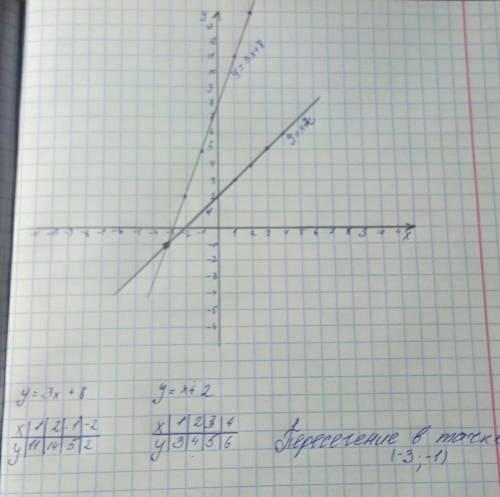 y
y = 3x+8
y=x+2
x
y = 3x + 8
y = x + 2
x | 1 | 2 | -1 | -2
y | 11 | 14 | 5 | 2
x | 1 | 2 | 3 | 4
y | 3 | 4 | 5 | 6
Пересечение в точке
(-3; -1)